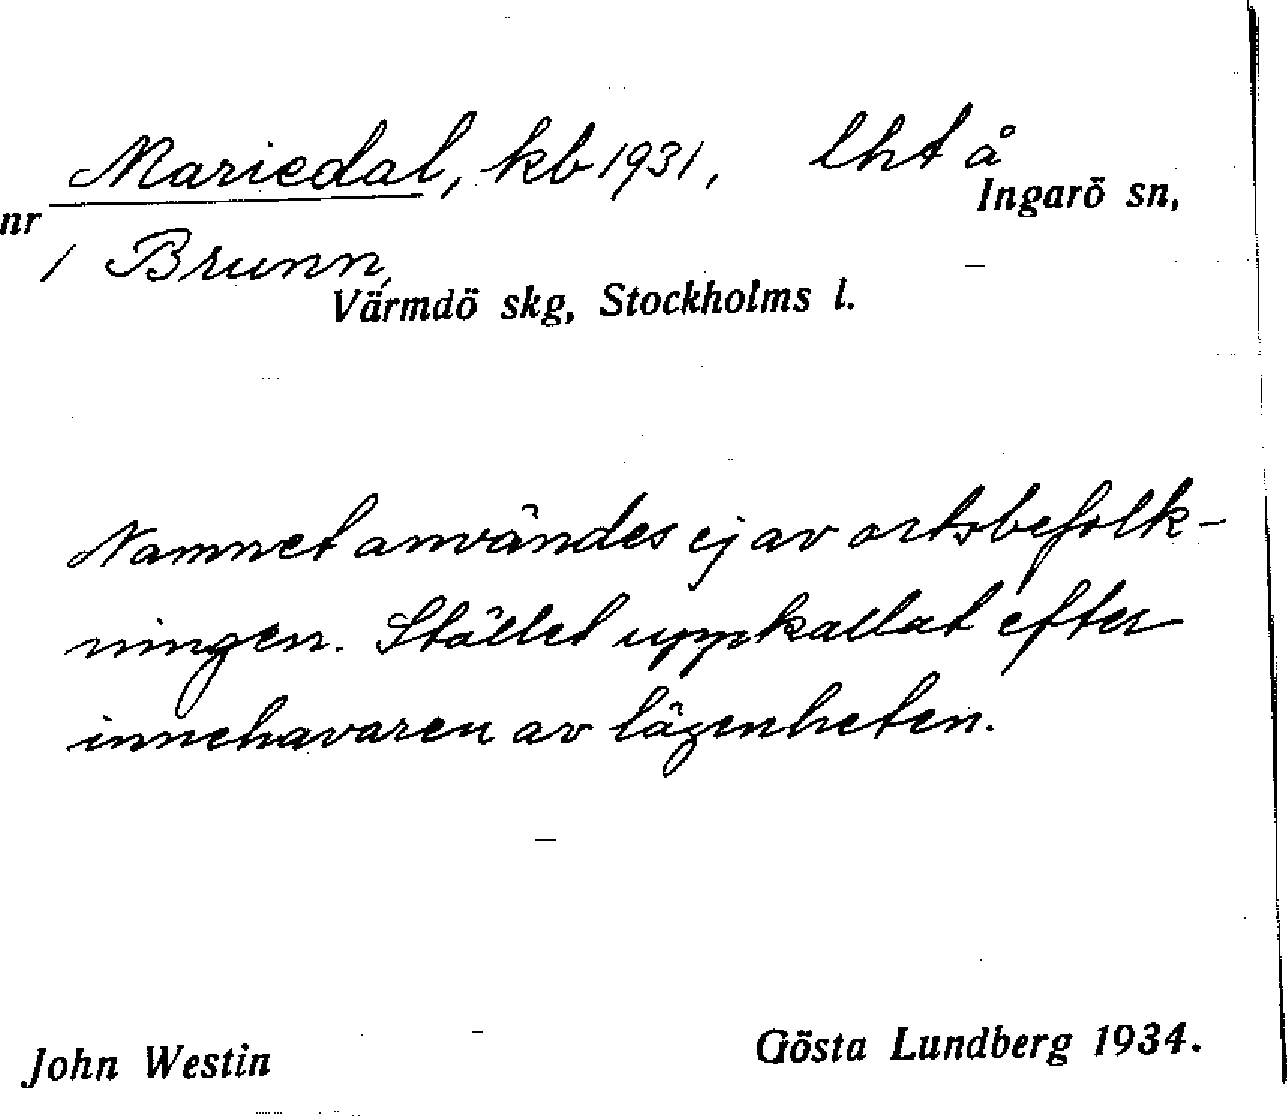 Mariedal, kb 1931, lht å
Ingarö sn,
nr
1 Brunn,
Värmdö skg, Stockholms l.
Namnet användes ej av ortsbefolk-
ningen. Stället uppkallat efter
innehavaren av lägenheten.
John Westin
Gösta Lundberg 1934.